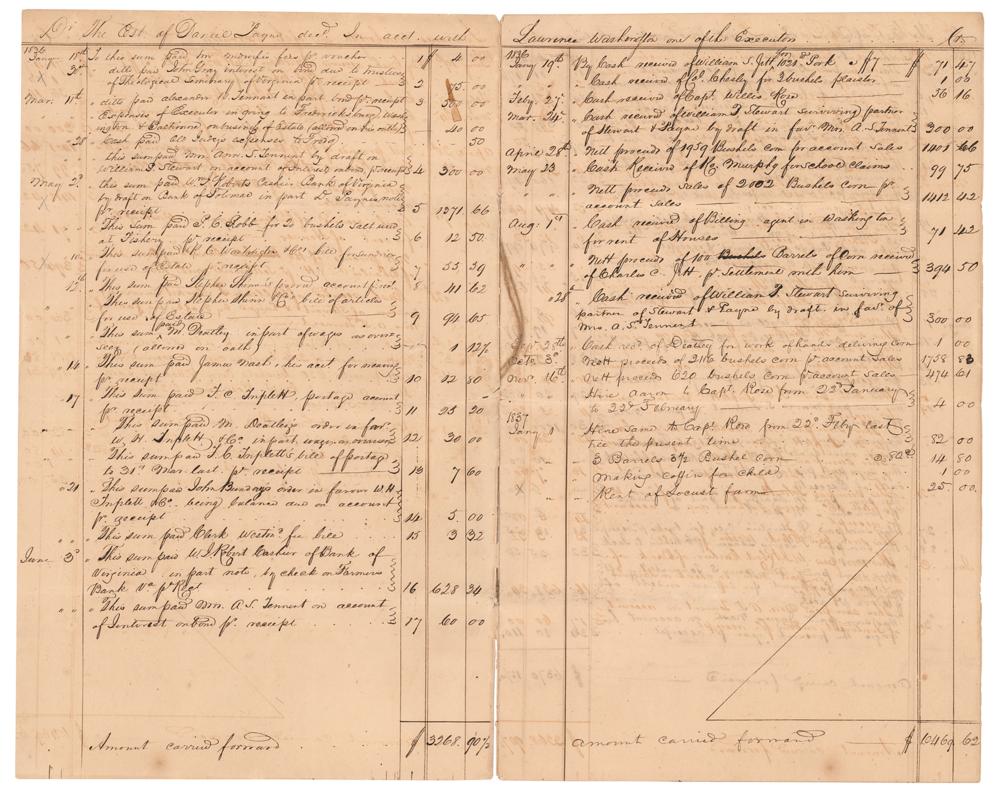 Dr. The Est. of Daniel Payne decd. In acct. with
1836
Jany 18th To this sum paid for fees pr. voucher 1 $ 4 00
ditto paid John Gray interest on bond due to trustees
of Theological Seminary of Virginia pr. receipt 2 75 00
Mar: 11th " ditto paid Alexander Tennant in part bond pr. receipt 3 500 00
Expenses of Executor in going to Fredericksburg, Wash-
ington & on business of Estate 40 00
Cash paid expenses to Fredg 50
this sum paid Mrs. Ann S. Tennent by draft in
William P. Stewart on account of Interest on bond, pr. receipt 4 300 00
May 2d. this sum paid Wm. J. Roberts Cashier Bank of Virginia
by draft on Bank of Potomac in part D. Payne's note
pr. receipt 5 1371 66
" This sum paid P. C. Robb for 20 bushels Salt used
at Fishery pr. receipt 6 12 50
" This sum paid Washington & Co. bill for
use of Estate pr. receipt 7 55 39
12th " This sum paid Stephen Shinn's proved account 8 41 62
This sum paid Stephen Shinn & Co. bill of articles
for use of Estate 9 94 65
" This sum paid M. Deatley in part of wages as over
seer (allowed on oath) 1 12½
" 14 " This sum paid James Nash, his acct. for weaving
pr. receipt 10 12 80
" 17 " This sum paid F. C. Triplett, postage account
pr. receipt 11 25 20
" This sum paid M. Deatley's order in fav.
W. H. Triplett & Co. in part, wages as overseer 12 30 00
This sum paid F. C. Triplett's bill of postage
to 31st Mar. last pr. receipt 13 7 60
" 21 " This sum paid John order in favour W. H.
Triplett & Co. being balance due on account
pr. receipt 14 5 00
" " " This sum paid Clerk Westmd. fee bill 15 3 32
June 3d " This sum paid W. J. Robert Cashier of Bank of
Virginia, in part note, by check on Farmers
Bank Va. pr. Rect 16 628 34
" " " This sum paid Mrs. A. S. Tennent on account
of Interest on bond pr. receipt 17 60 00
Amount carried forward $ 3268. 90½
Lawrence Washington one of the Executors Cr.
1836
Jany 19th By Cash received of William S. Jett for 1021 Pork a $7 $ 71 47
Cash received of Col. Chesley for 2 bushels plaister 1 00
Feby. 27 " Cash received of Capt. Willis Rose 56 16
Mar. 24 " Cash received of William P. Stewart surviving partner
of Stewart & Payne by draft in fav. Mrs. A. S. Tennent 300 00
April 28th " Nett proceeds of 1959 Bushels corn pr. account sales 1401 66
May 23 " Cash Received of Murphy for school claims 99 75
Nett proceeds sales of 2002 Bushels corn pr.
account sales 1412 42
Aug: 1st Cash received of Billing agent in Washington
for rent of Houses 71 42
Nett proceeds of 100 Bushels Barrels of Corn received
of Charles C. Jett pr. Settlement with him 394 50
" 28th Cash received of William P. Stewart surviving
partner of Stewart & Payne by draft in fav. of
Mrs. A. S. Tennent 300 00
Sept. 28th " Cash recd. of Deatley for work of hands delivering corn 1 00
Octo. 3d " Nett proceeds of 2116 bushels corn pr. account sales 1758 83
Novr. 16th " Nett proceeds 620 bushels corn pr. account sales 474 61
Hire Aaron to Capt. Rose from 22d January
to 22d February 4 00
1837
Jany 1 Hire same to Capt. Rose from 22d. Feby last
till the present time 82 00
3 Barrels 3½ Bushel Corn 14 80
Making coffin for child 1 00
Rent of Locust farm 25 00
Amount carried forward $ 6469. 62